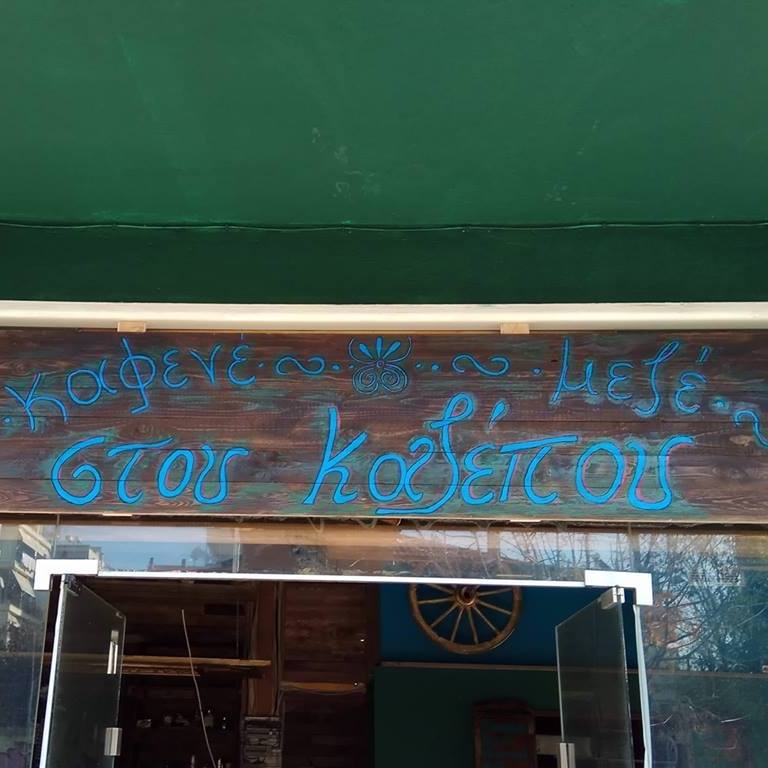 καφενέ μεζέ
στου καζέπου